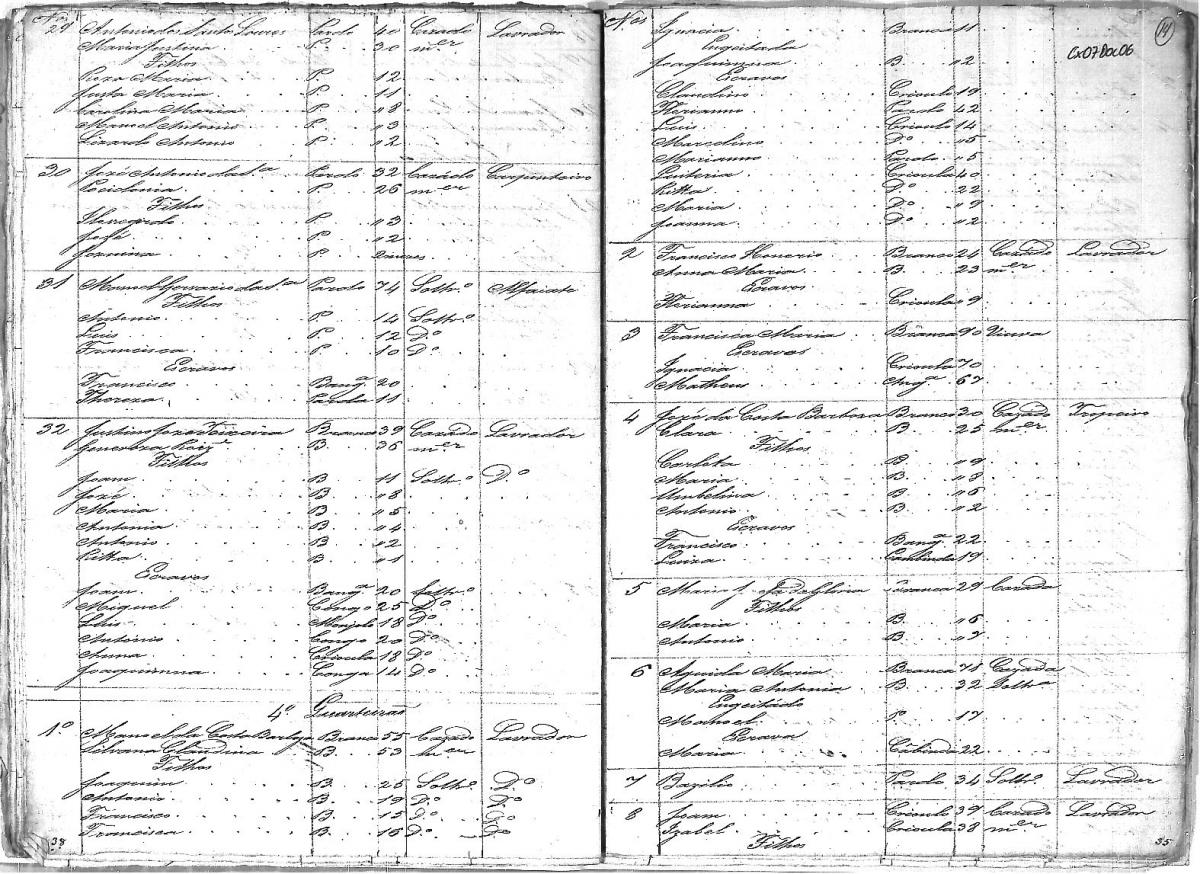 Nos
29 Antonio dos Santos Pardo 40 Cazado Lavrador
Maria Justina P. 30 m.er
Filhos
Roza Maria P. 12
Justa Maria P. 11
Carolina Maria P. 8
Manoel Antonio P. 3
Lizardo Antonio P. 2
30 José Antonio da Sa. Pardo 32 Cazado Carpinteiro
P. 26 m.er
Filhos
P. 3
José P. 2
P. 2 mezes
31 Manoel Gervazio da Sa. Pardo 74 Solt.o Alfaiate
Filhos
Antonio P. 14 Solt.o
Luis P. 12 D.o
Francisca P. 10 D.o
Escravos
Francisco Bang.a 20
Thereza Parda 11
32 Justino Joze Teixeira Branco 39 Cazado Lavrador
Generoza B. 36 m.er
Filhos
Joam B. 11 Solt.o D.o
Jozé B. 8
Maria B. 5
Antonia B. 4
Antonio B. 2
Ritha B. 1
Escravos
Joam Bang.a 20 Solt.o
Miguel Congo 25 D.o
Luis Monjolo 18 D.o
Antonio Congo 20 D.o
Anna Crioula 18 D.o
Joaquinna Conga 14 D.o
4.o Quarteirão
1.o Manoel da Costa Barboza Branco 55 Cazado Lavrador
Silvana Claudina B. 53 m.er
Filhos
Joaquim B. 25 Solt.o D.o
Antonio B. 19 D.o D.o
Francisco B. 15 D.o D.o
Francisca B. 16 D.o D.o
38
Nos
14
Cx07Doc06
Ignacia Branca 11
Engeitada
Joaquinna B. 2
Escravos
Claudino Crioulo 19
Pardo 42
Luis Crioulo 14
Marcolino D.o 5
Marianno Pardo 5
Quiteria Crioula 40
Ritha D.o 22
Maria D.o 9
Joanna D.o 2
2 Francisco Honorio Branco 24 Cazado Lavrador
Anna Maria B. 23 m.er
Escravos
Crioula 9
3 Francisca Maria Branca 90 Viuva
Escravos
Ignacia Crioula 70
Matheus Ang.a 67
4 José da Costa Barboza Branco 30 Cazado Tropeiro
Clara B. 25 m.er
Filhos
Carlota B. 9
Maria B. 8
Umbelina B. 6
Antonio B. 2
Escravos
Francisco Bang.a 22
Luiza Cambinda 19
5 Maria da Gloria Branca 29 Cazada
Filhos
Maria B. 6
Antonio B. 7
6 Aguida Maria Branca 78 Cazada
Maria Antonia B. 32 Solt.a
Engeitado
Manoel P. 17
Escrava
Maria Cabinda 22
7 Bazilio Pardo 34 Solt.o Lavrador
8 Joam Crioulo 39 Cazado Lavrador
Izabel Crioula 38 m.er
Filhos
35